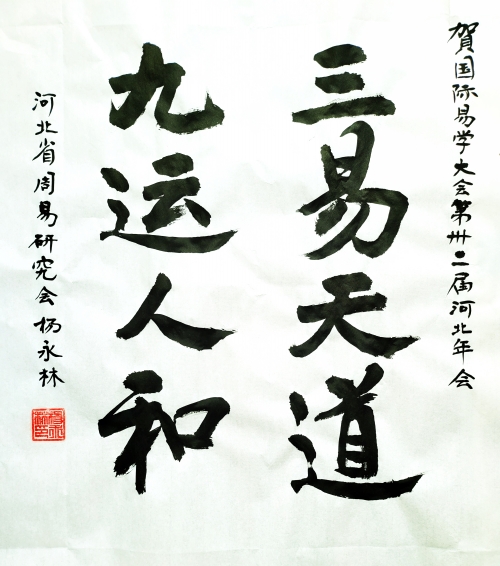 賀国际易学大会第卅二届河北年会
三易天道
九运人和
河北省周易研究会杨永林